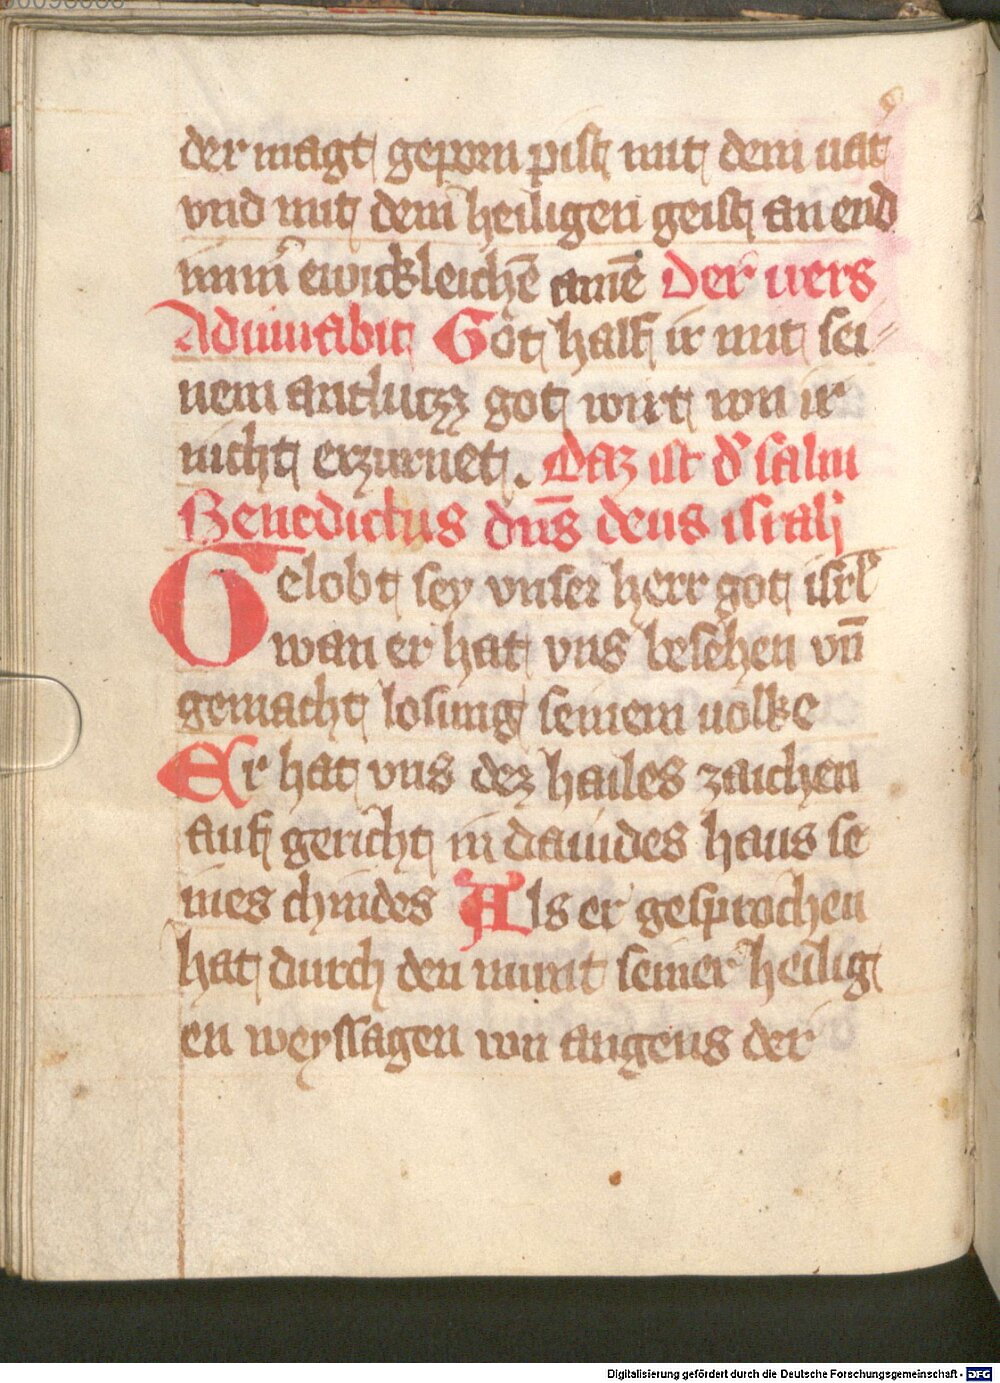 der magt geporn pist mit dem uat
vnd mit dem heiligen geist an end
nimer ewickleichē amē Der vers
Adiuuabit Got half ir mit sei⸗
nem antluczz got wirt von ir
nicht erzurnet. Daz ist d̕ salm
Benedictus dn̄s deus israli
Gelobt sey vnser herr got isrl̕
wan er hat vns besehen vn̄
gemacht losung seinem uolke
Er hat vns dez hailes zaichen
auf gericht in dauides haus se
ines chindes Als er gesprochen
hat durch den munt seiner heilig
en weyssagen von angens der
Digitalisierung gefördert durch die Deutsche Forschungsgemeinschaft - DFG